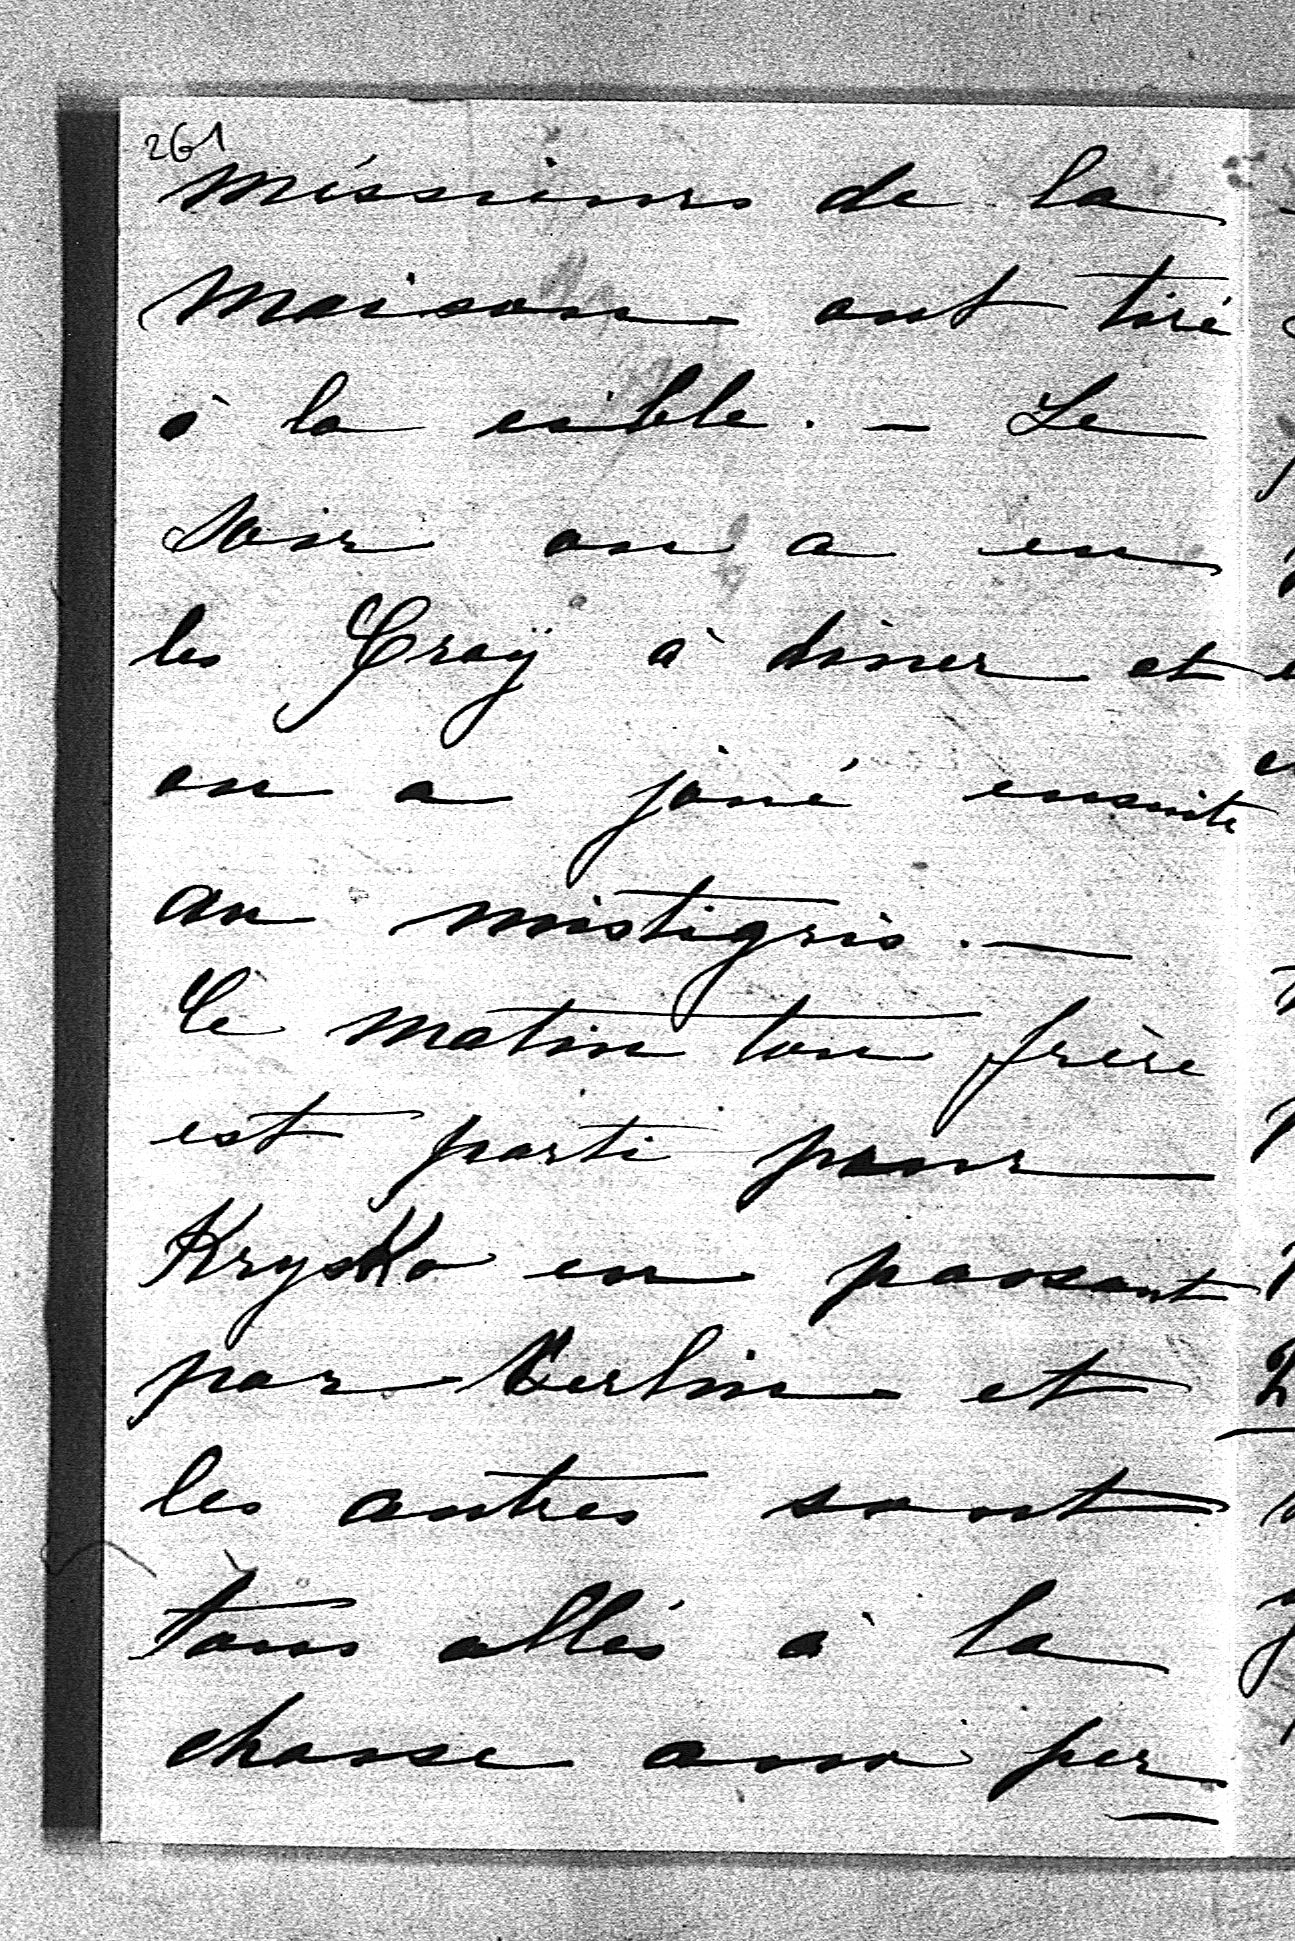 261
méssieurs de la
maison ont tiré
à la cible. — Le
soir on a eu
les Croÿ à dîner et
on a joué ensuite
au mistigris. —
Ce matin ton frère
est parti pour
Krysko en passant
par Berlin et
les autres sont
tous allés à la
chasse aux per